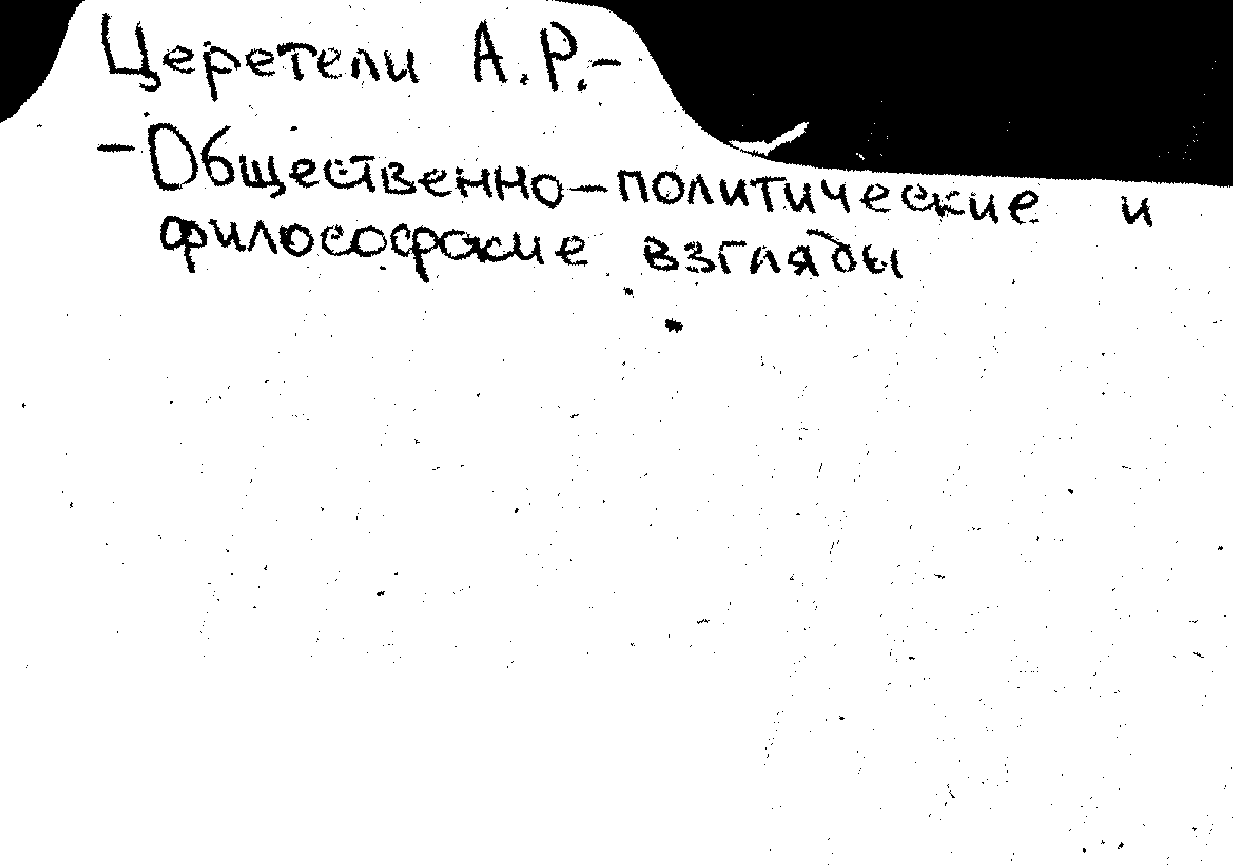 Церетели А.Р.-
-Общественно-политические и
философские взгляды